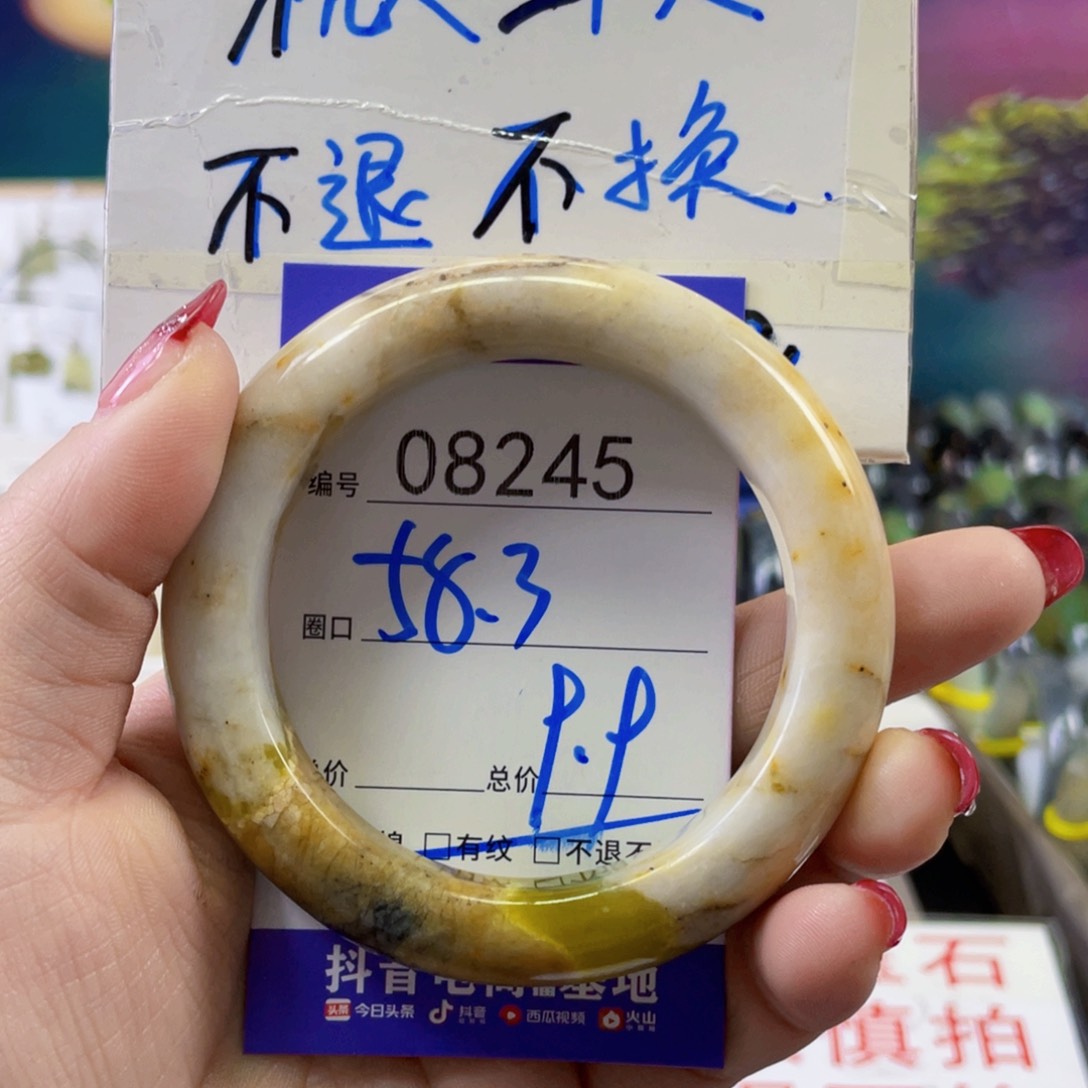 不退不换.
编号 08245
圈口 58.3
价 总价 9.9
□有纹 □不退不
抖音电商 基地
头条 今日头条 抖音 西瓜视频 火山
石
慎拍